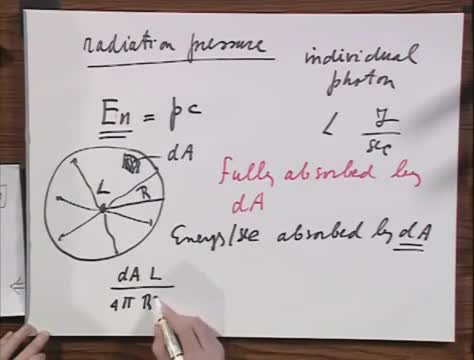 radiation pressure
individual
photon
En = pc
L J/sec
dA
L
R
Fully absorbed by
dA
Energy/sec absorbed by dA
dA L
4π R